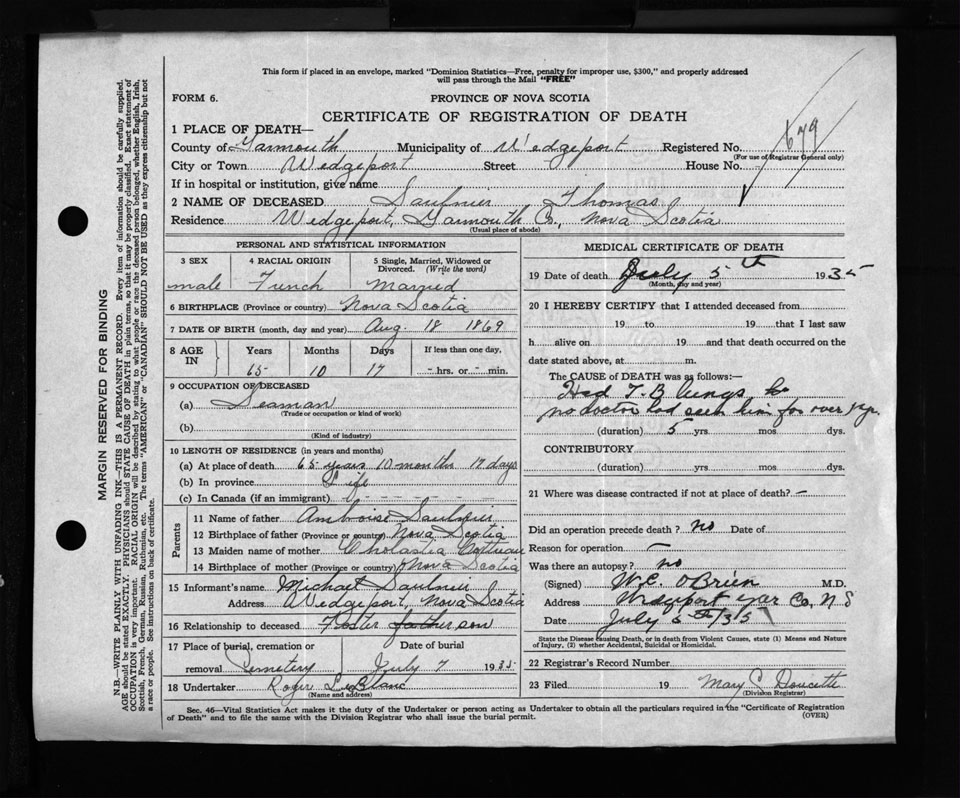 This form if placed in an envelope, marked "Dominion Statistics—Free, penalty for improper use, $300," and properly addressed
will pass through the Mail "FREE"
FORM 6.
PROVINCE OF NOVA SCOTIA
CERTIFICATE OF REGISTRATION OF DEATH
679
1 PLACE OF DEATH—
County of Yarmouth Municipality of Wedgeport Registered No.
(For use of Registrar General only)
City or Town Wedgeport Street House No.
If in hospital or institution, give name
2 NAME OF DECEASED Saulnier Thomas
Residence Wedgeport, Yarmouth Co., Nova Scotia
(Usual place of abode)
PERSONAL AND STATISTICAL INFORMATION
3 SEX 4 RACIAL ORIGIN 5 Single, Married, Widowed or
Divorced. (Write the word)
male French Married
6 BIRTHPLACE (Province or country) Nova Scotia
7 DATE OF BIRTH (month, day and year) Aug. 18 1869
8 AGE IN Years Months Days If less than one day,
65 10 17 - hrs. or - min.
9 OCCUPATION OF DECEASED
(a) Seaman
(Trade or occupation or kind of work)
(b)
(Kind of industry)
10 LENGTH OF RESIDENCE (in years and months)
(a) At place of death 65 years 10 months 17 days
(b) In province Life
(c) In Canada (if an immigrant)
Parents
11 Name of father Ambroise Saulnier
12 Birthplace of father (Province or country) Nova Scotia
13 Maiden name of mother
14 Birthplace of mother (Province or country) Nova Scotia
15 Informant's name Michael Saulnier
Address Wedgeport, Nova Scotia
16 Relationship to deceased Foster father son
17 Place of burial, cremation or Date of burial
removal Cemetery July 7 1935
18 Undertaker Roger LeBlanc
(Name and address)
MEDICAL CERTIFICATE OF DEATH
19 Date of death July 5th 1935
(Month, day and year)
20 I HEREBY CERTIFY that I attended deceased from
19 to 19 that I last saw
h alive on 19 and that death occurred on the
date stated above, at m.
The CAUSE of DEATH was as follows:—
Had T.B lungs
no doctor had seen him for over yr.
(duration) 5 yrs. mos. dys.
CONTRIBUTORY
(duration) yrs. mos. dys.
21 Where was disease contracted if not at place of death? -
Did an operation precede death? no Date of
Reason for operation —
Was there an autopsy? no
(Signed) W.C. O'Brien M.D.
Address Wedgeport Yar Co. N S
Date July 5th/35
State the Disease causing Death, or in death from Violent Causes, state (1) Means and Nature
of Injury, (2) whether Accidental, Suicidal or Homicidal.
22 Registrar's Record Number
23 Filed 19 Mary C Doucette
(Division Registrar)
Sec. 46—Vital Statistics Act makes it the duty of the Undertaker or person acting as Undertaker to obtain all the particulars required in the "Certificate of Registration
of Death" and to file the same with the Division Registrar who shall issue the burial permit.
(OVER)
MARGIN RESERVED FOR BINDING
N.B.—WRITE PLAINLY WITH UNFADING INK—THIS IS A PERMANENT RECORD. Every item of information should be carefully supplied.
AGE should be stated EXACTLY. PHYSICIANS should STATE CAUSE OF DEATH in plain terms, so that it may be properly classified. Exact statement of
OCCUPATION is very important. RACIAL ORIGIN will be described by stating to what people or race the deceased person belonged, whether English, Irish,
Scottish, French, German, Russian, Ruthenian, etc. The terms "AMERICAN" or "CANADIAN" SHOULD NOT BE USED as they express citizenship but not
a race or people. See instructions on back of certificate.